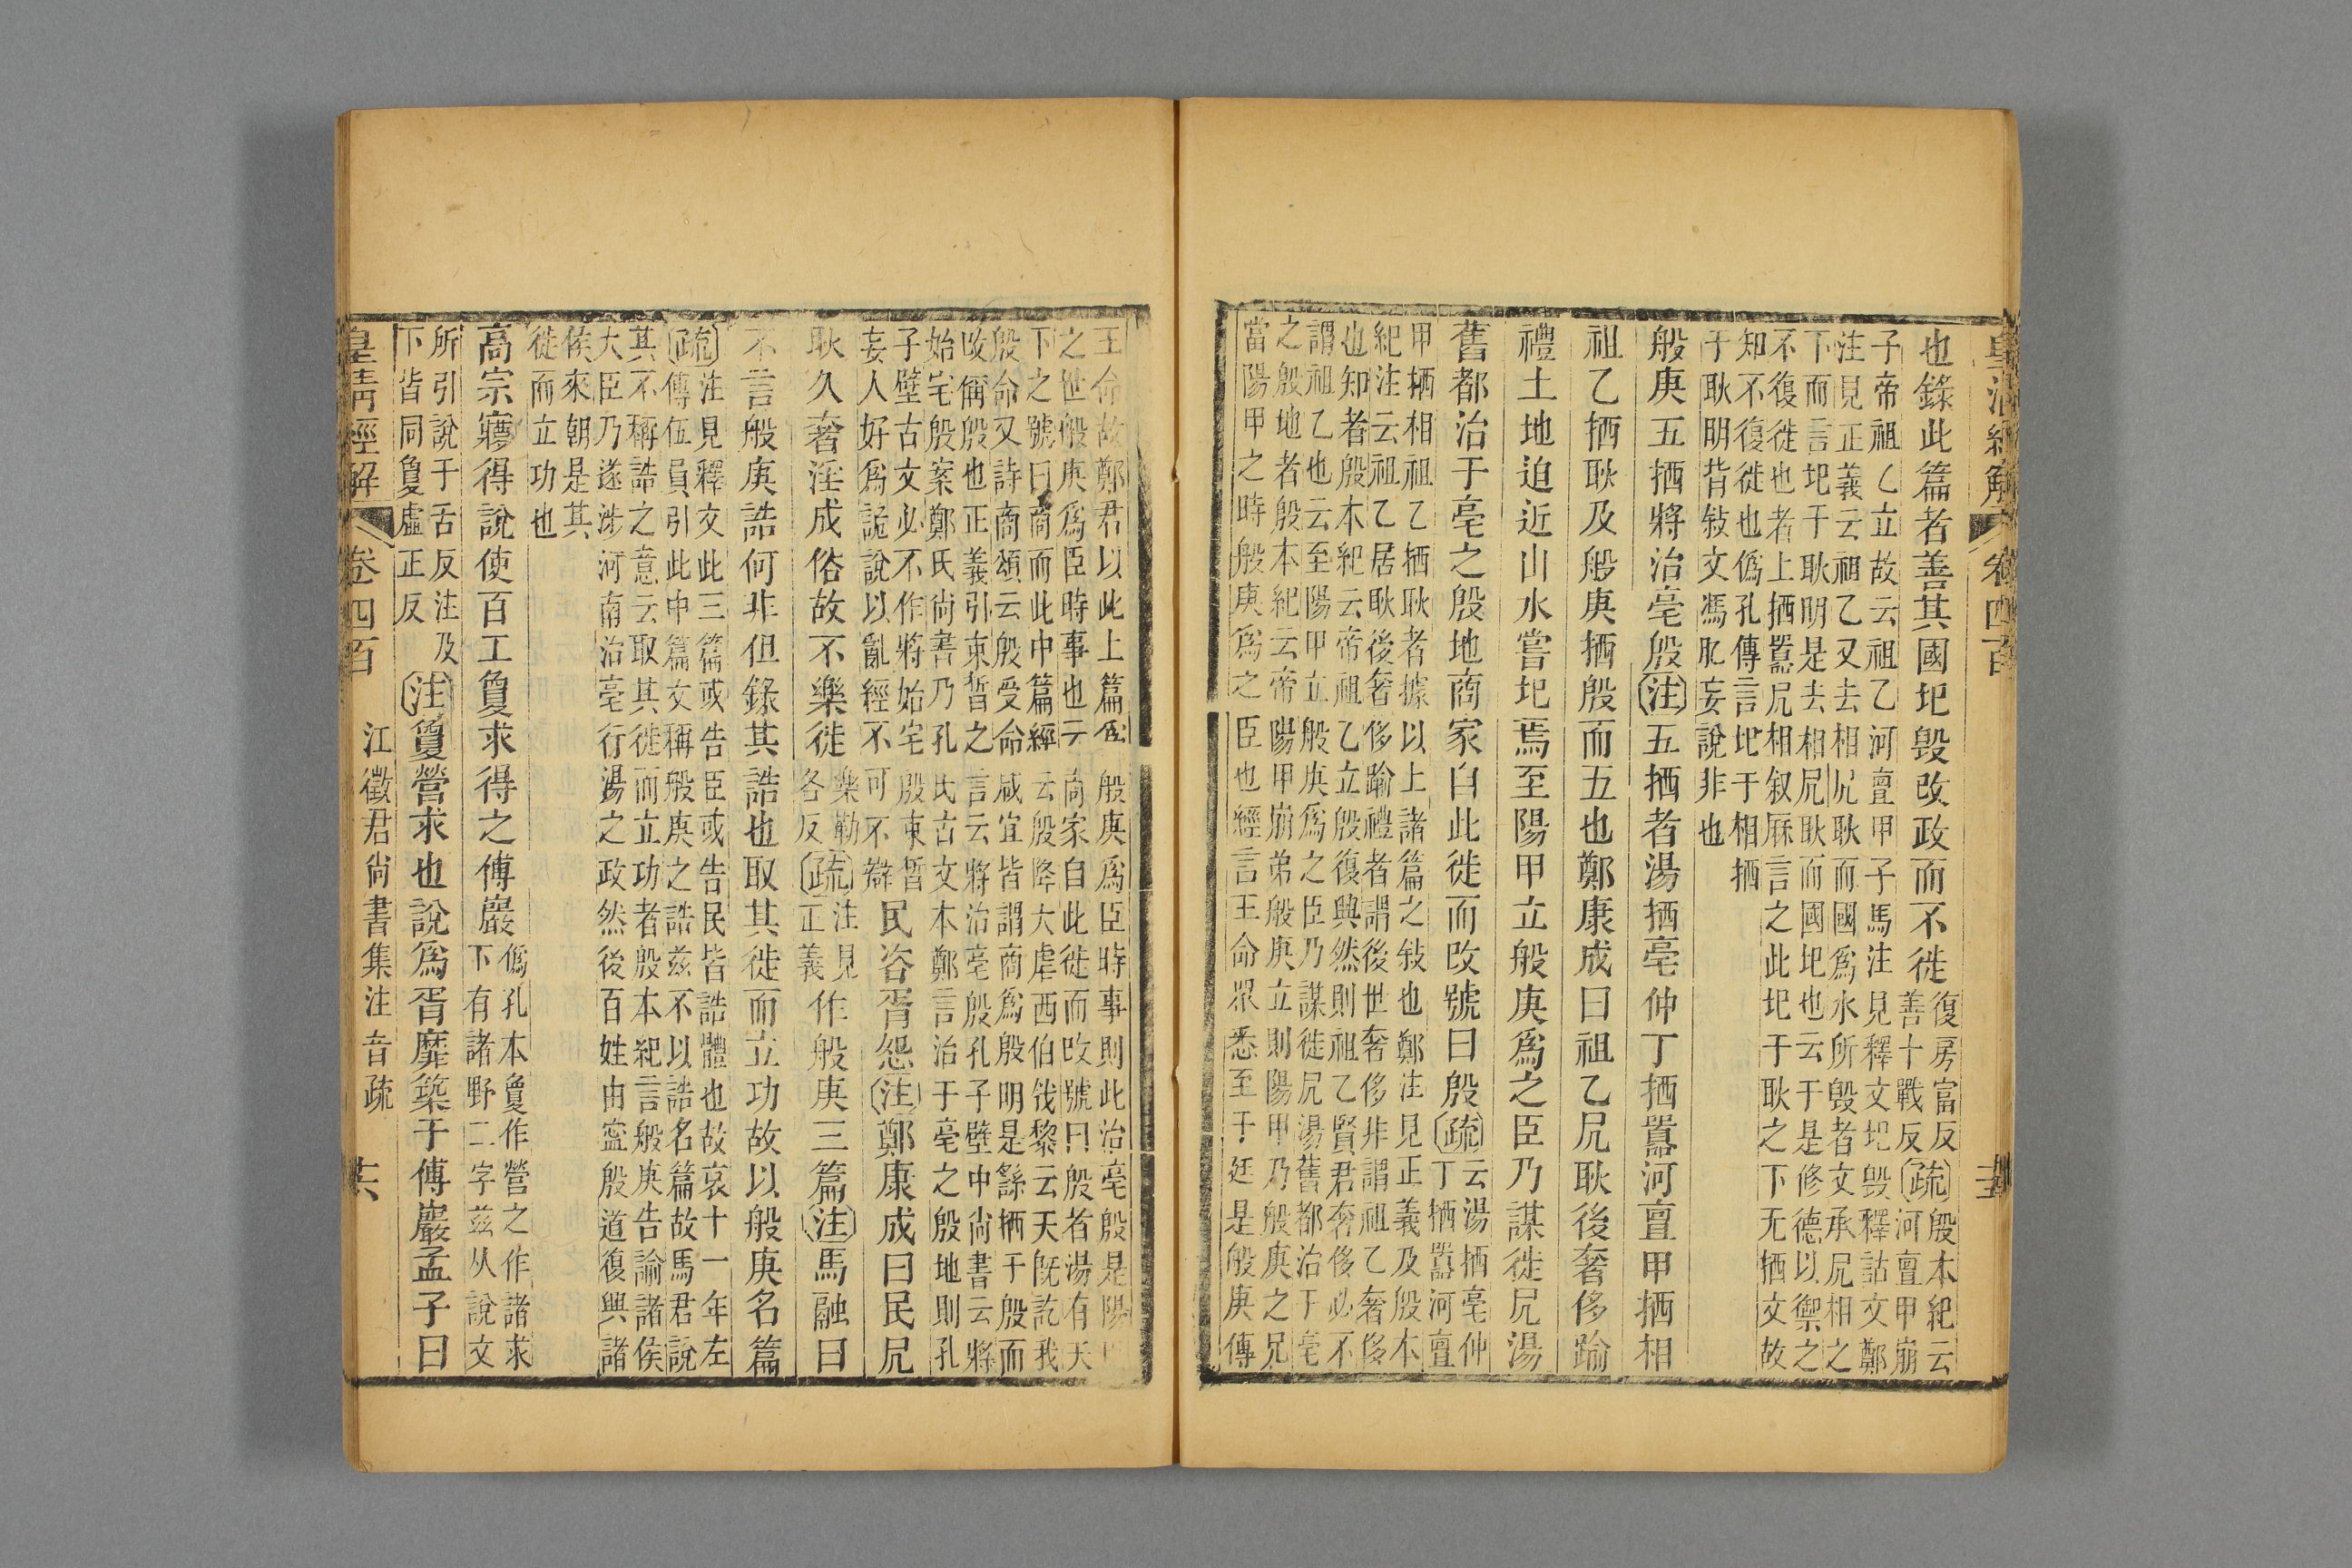 皇清經解 卷四百
也錄此篇者善其國圯毀改政而不徙
復房富反疏殷本紀云
善十戰反河亶甲崩
子帝祖乙立故云祖乙河亶甲子馬注見釋文圯毀釋詁文鄭
注見正義云祖乙又去相凥耿而國爲水所毀者文承凥相之
下而言圯于耿明是去相凥耿而國圯也云于是修德以禦之
不復徙也者上㐭囂凥相叙厤言之此圯于耿之下无㐭文故
知不復徙也僞孔傳言圯于相㐭
于耿明背敍文馮肊妄說非也
般庚五㐭將治亳殷注五㐭者湯㐭亳仲丁㐭囂河亶甲㐭相
祖乙㐭耿及般庚㐭殷而五也鄭康成曰祖乙凥耿後奢侈踰
禮土地迫近山水嘗圯焉至陽甲立般庚爲之臣乃謀徙凥湯
舊都治于亳之殷地商家自此徙而改號曰殷疏
云湯㐭亳仲
丁㐭囂河亶
甲㐭相祖乙㐭耿者據以上諸篇之敍也鄭注見正義及殷本
紀注云祖乙居耿後奢侈踰禮者謂後世奢侈非謂祖乙奢侈
也知者殷本紀云帝祖乙立殷復興然則祖乙賢君奢侈必不
謂祖乙也云至陽甲立般庚爲之臣乃謀徙凥湯舊都治于亳
之殷地者殷本紀云帝陽甲崩弟般庚立則陽甲乃般庚之兄
當陽甲之時般庚爲之臣也經言王命眾悉至于廷是般庚傳
王命故鄭君以此上篇爲般庚爲臣時事則此治亳殷是陽
之世般庚爲臣時事也云商家自此徙而改號曰殷者湯有天
下之號曰商而此中篇經云殷降大虐西伯戗黎云天旣訖我
殷命又詩商頌云殷受命咸宜皆謂商爲殷明是繇㐭于殷而
改偁殷也正義引束晳之言云將治亳殷孔子壁中尙書云將
始宅殷案鄭氏尙書乃孔氏古文本鄭言治于亳之殷地則孔
子壁古文必不作將始宅殷束晳
妄人好爲詭說以亂經不可不辯
民咨胥怨注鄭康成曰民凥
耿久奢淫成俗故不樂徙
樂勒
各反
疏
注見
正義
作般庚三篇注馬融曰
不言般庚誥何非但錄其誥也取其徙而立功故以般庚名篇
疏注見釋文此三篇或告臣或告民皆誥體也故哀十一年左
傳伍員引此中篇文稱般庚之誥茲不以誥名篇故馬君說
其不稱誥之意云取其徙而立功者殷本紀言般庚告諭諸侯
大臣乃遂涉河南治亳行湯之政然後百姓由寍殷道復興諸
侯來朝是其
徙而立功也
高宗㝱得說使百工敻求得之傅巖
僞孔本敻作營之作諸求
下有諸野二字茲从說文
所引說于舌反注及
下皆同敻虛正反
注敻營求也說爲胥靡築于傅巖孟子曰
皇淸經解 卷四百 江徵君尙書集注音疏 十六